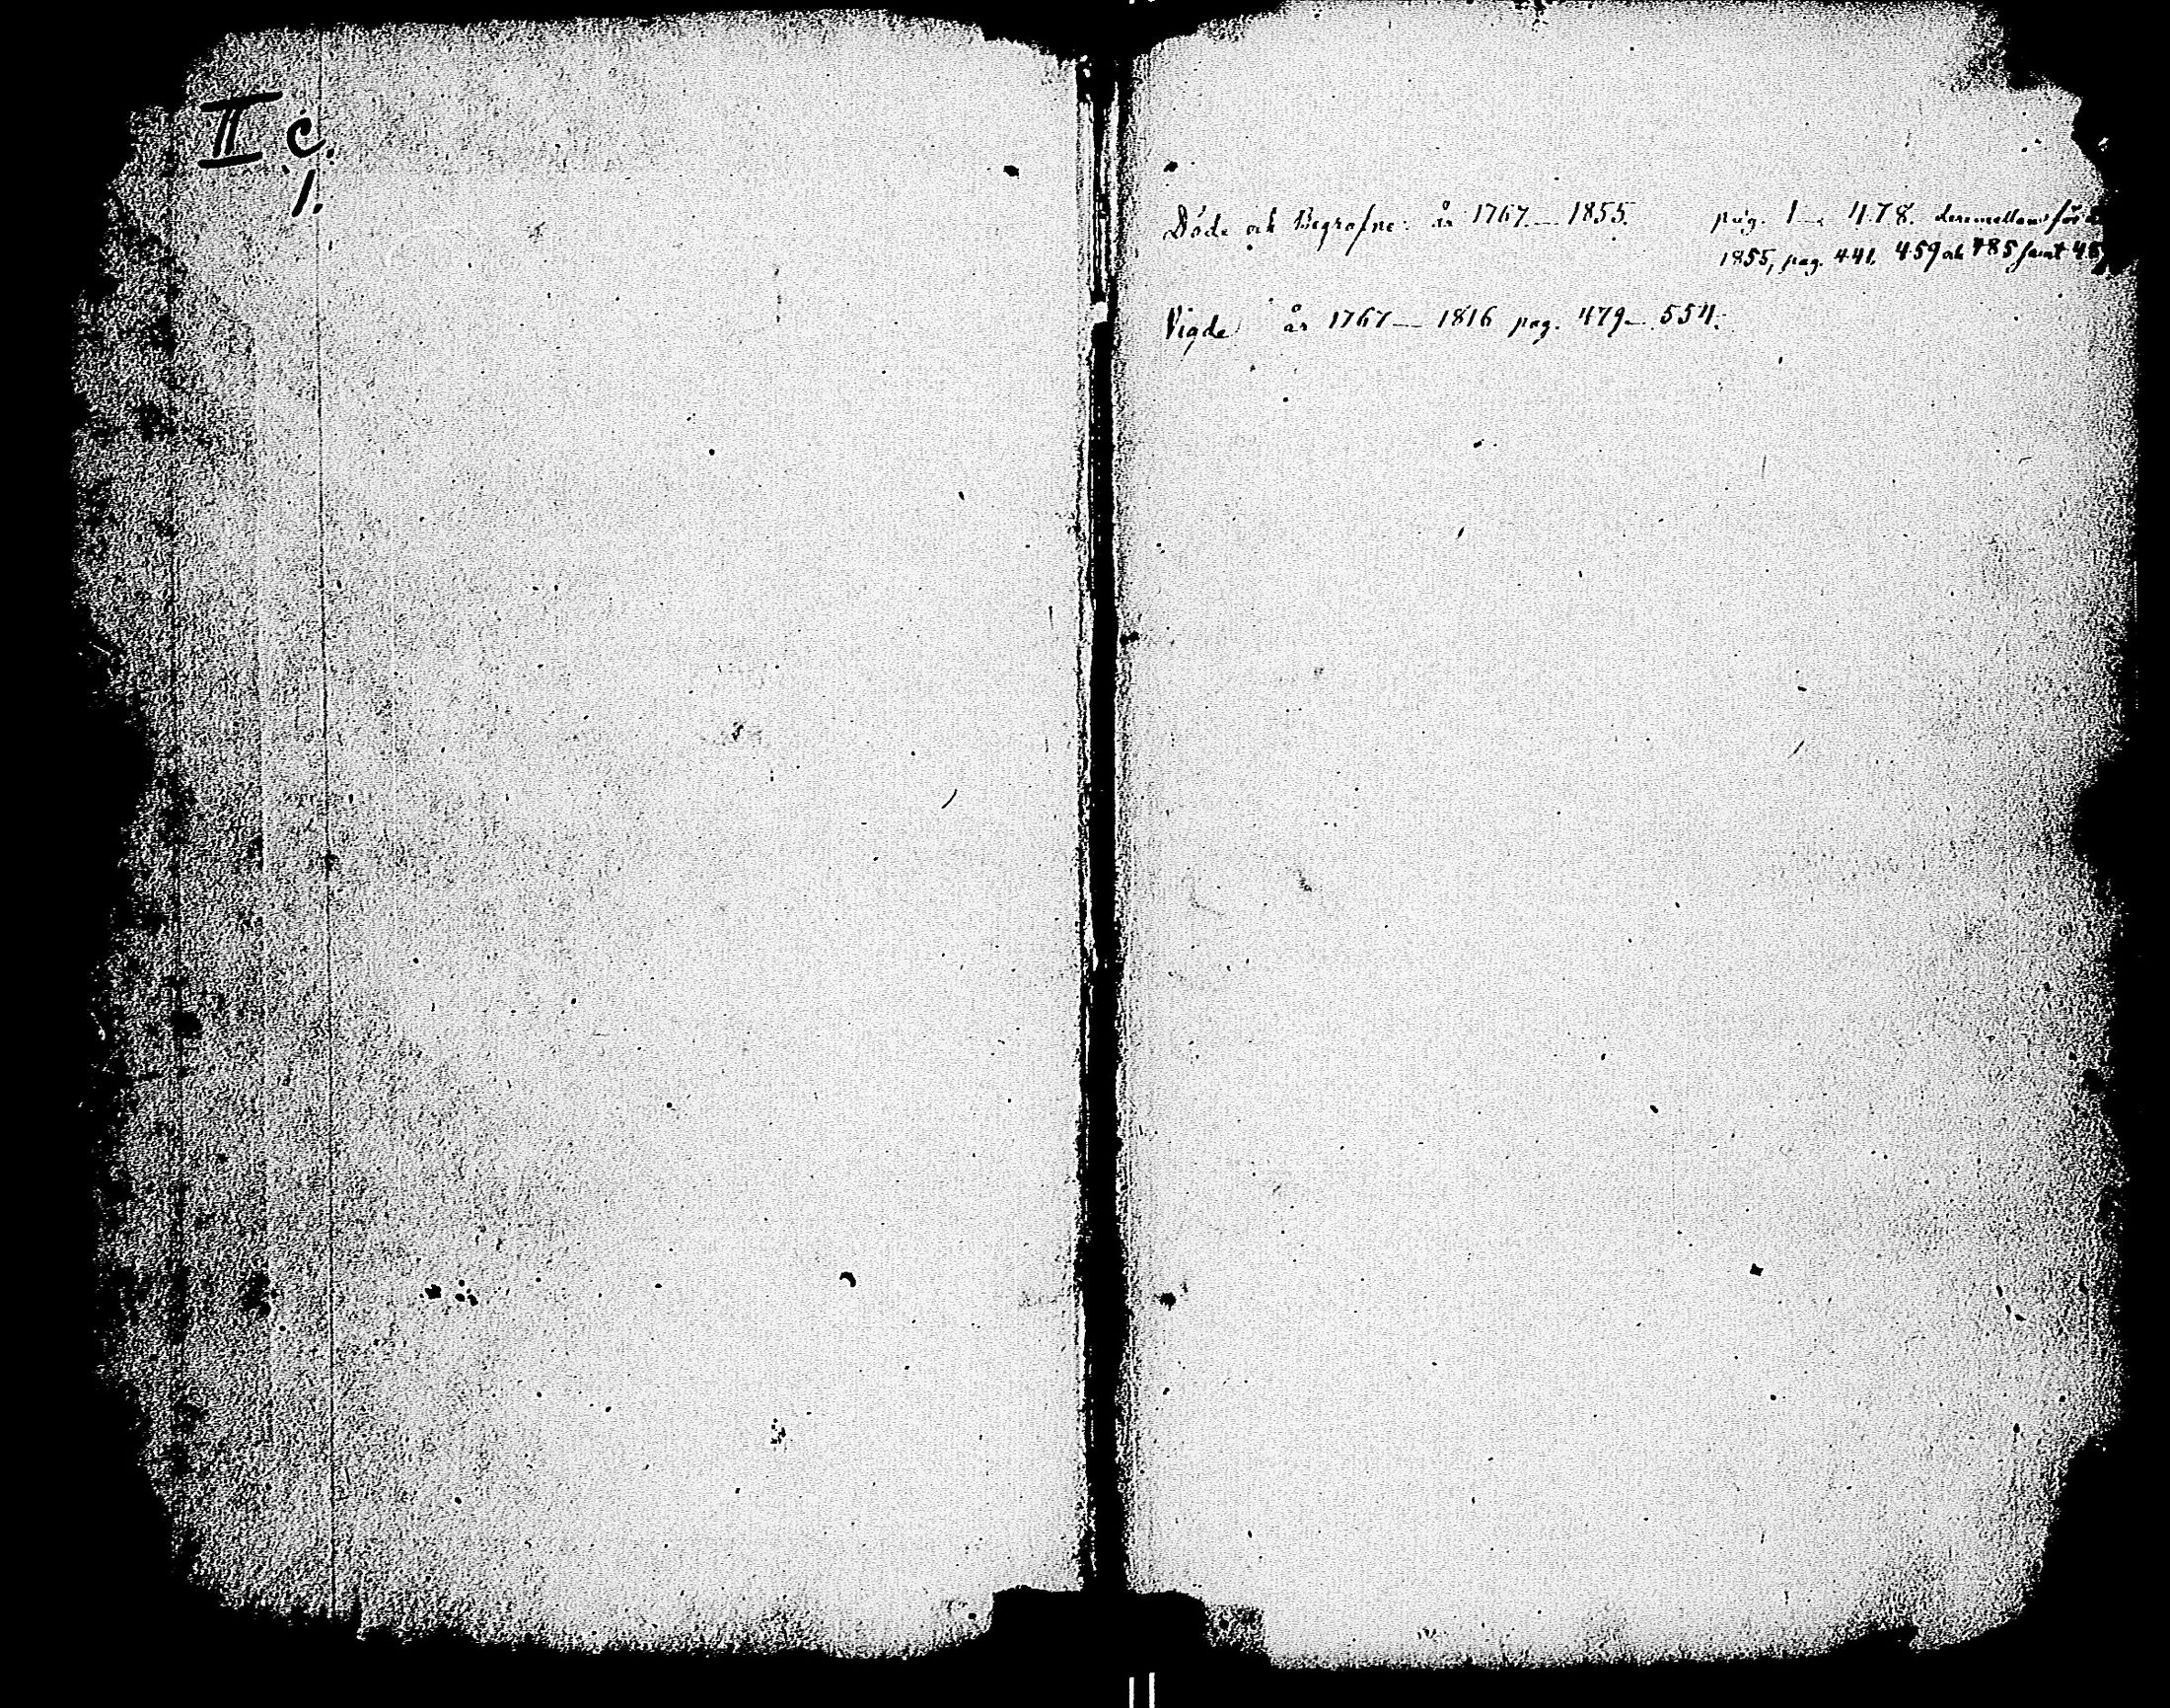 II c.
1.
Döde och Begrafne: år 1767 — 1855. pag. 1 — 478. deremellan för
1855, pag. 441, 459 och 485 samt
Vigde år 1767 — 1816 pag. 479 — 554.